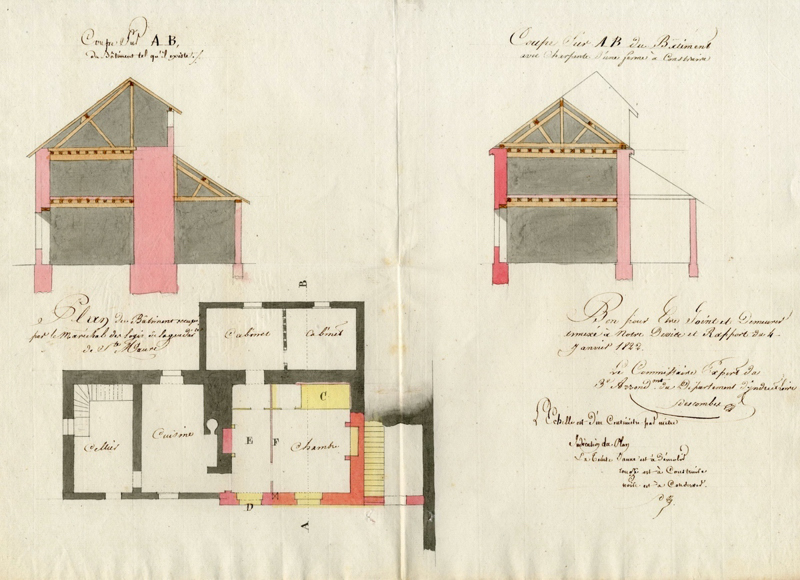 Coupe Sur A B,
du Bâtiment tel qu'il existe
Coupe Sur A B du Bâtiment
avec Charpente d'une ferme à Construire
Plan du Bâtiment occupé
par le Maréchal des logis de la gendie
de Ste Maure
B
Cabinet
Cabinet
C
Cellier
Cuisine
E
F
Chambre
D
A
Bon pour Etre Joint et Demeurer
annexé à Notre Devis et Rapport du 4
Janvier 1822
Le Commissaire Expert du
3e Arrondmt du Département d'Indre et Loire
Descombes
L'Echelle est d'un Centimètre par mètre
Indication du Plan
La Teinte Jaune est à Démolir
rouge est à Construire
noire est à Conserver.